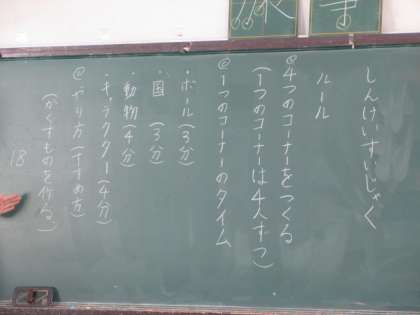 しんけいすいじゃく
ルール
@4つのコーナーをつくる
(1つのコーナーは4人ずつ)
@1つのコーナーのタイム
・ボール(3分)
・国(3分)
・動物(4分)
・キャラクター(4分)
@やり方(すすめ方)
(かくすものを作る。)
18